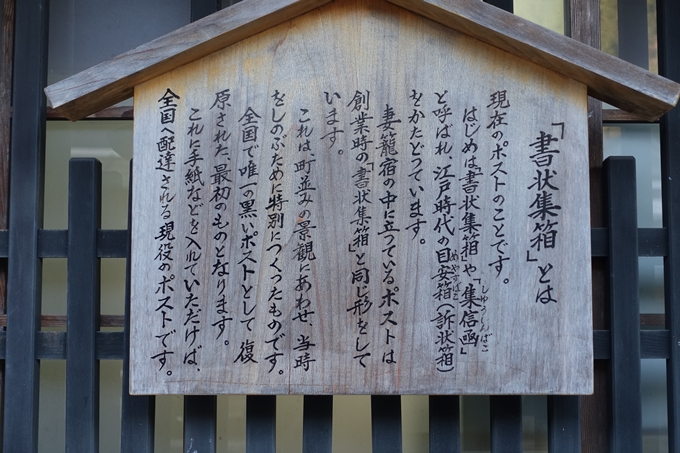 「書状集箱」とは
現在のポストのことです。
はじめは「書状集箱」や「集信函」
しゅうしんばこ
と呼ばれ、江戸時代の目安箱(訴状箱)
めやすばこ
をかたどっています。
妻籠宿の中に立っているポストは
創業時の「書状集箱」と同じ形をして
います。
これは町並みの景観にあわせ、当時
をしのぶために特別につくったものです。
全国で唯一の黒いポストとして復
原された、最初のものとなります。
これに手紙などを入れていただけば、
全国へ配達される現役のポストです。